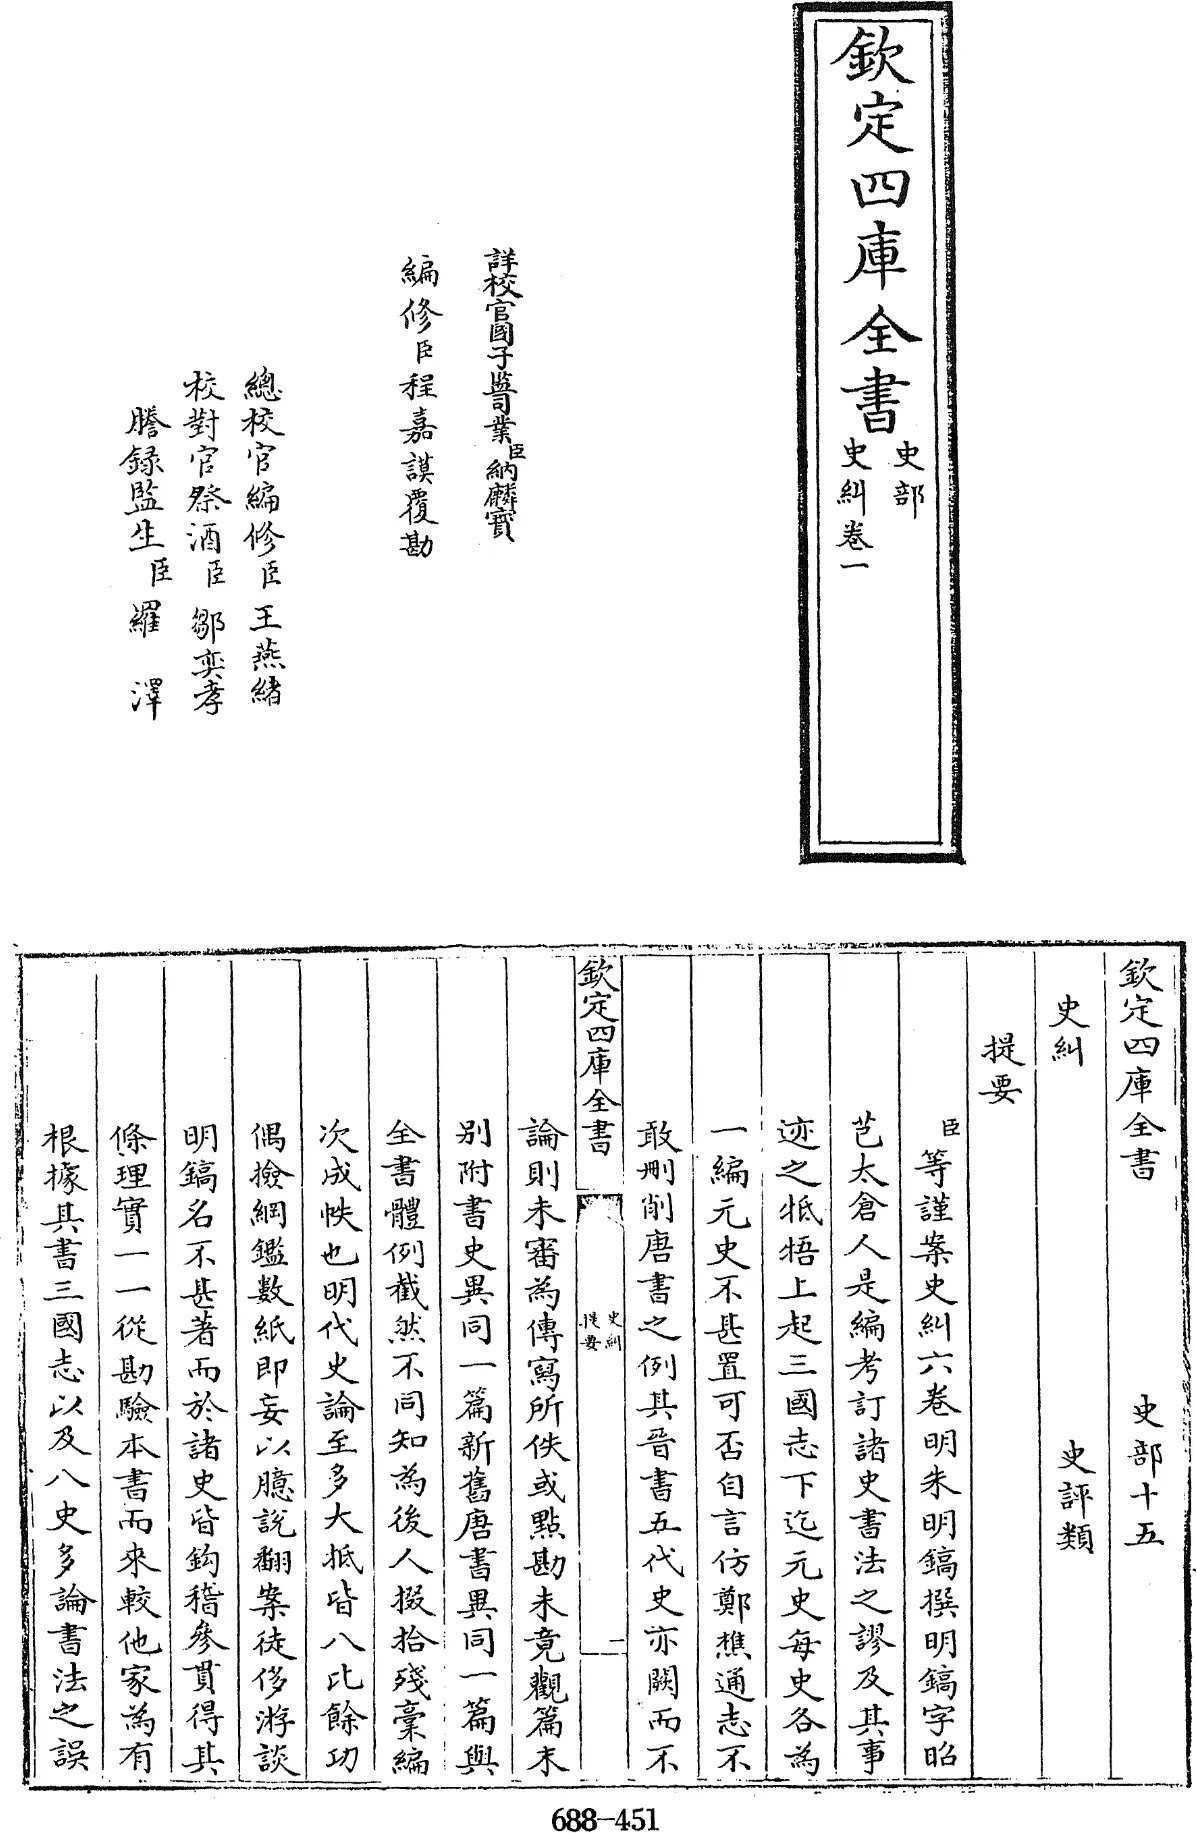 欽定四庫全書
史部
史糾卷一
詳校官國子監司業臣納麟寶
編修臣程嘉謨覆勘
總校官編修臣王燕緒
校對官祭酒臣鄒奕孝
謄録監生臣羅澤
欽定四庫全書 史部十五
史糾 史評類
提要
臣等謹案史糾六卷明朱明鎬撰明鎬字昭
芑太倉人是編考訂諸史書法之謬及其事
迹之牴牾上起三國志下迄元史每史各為
一編元史不甚置可否自言仿鄭樵通志不
敢刪削唐書之例其晉書五代史亦闕而不
欽定四庫全書 史糾 提要 二
論則未審為傳寫所佚或點勘未竟觀篇末
別附書史異同一篇新舊唐書異同一篇與
全書體例截然不同知為後人掇拾殘稾編
次成帙也明代史論至多大抵皆八比餘功
偶撿綱鑑數紙即妄以臆説翻案徒侈游談
明鎬名不甚著而於諸史皆鈎稽參貫得其
條理實一一從勘驗本書而來較他家為有
根據其書三國志以及八史多論書法之誤
688-451